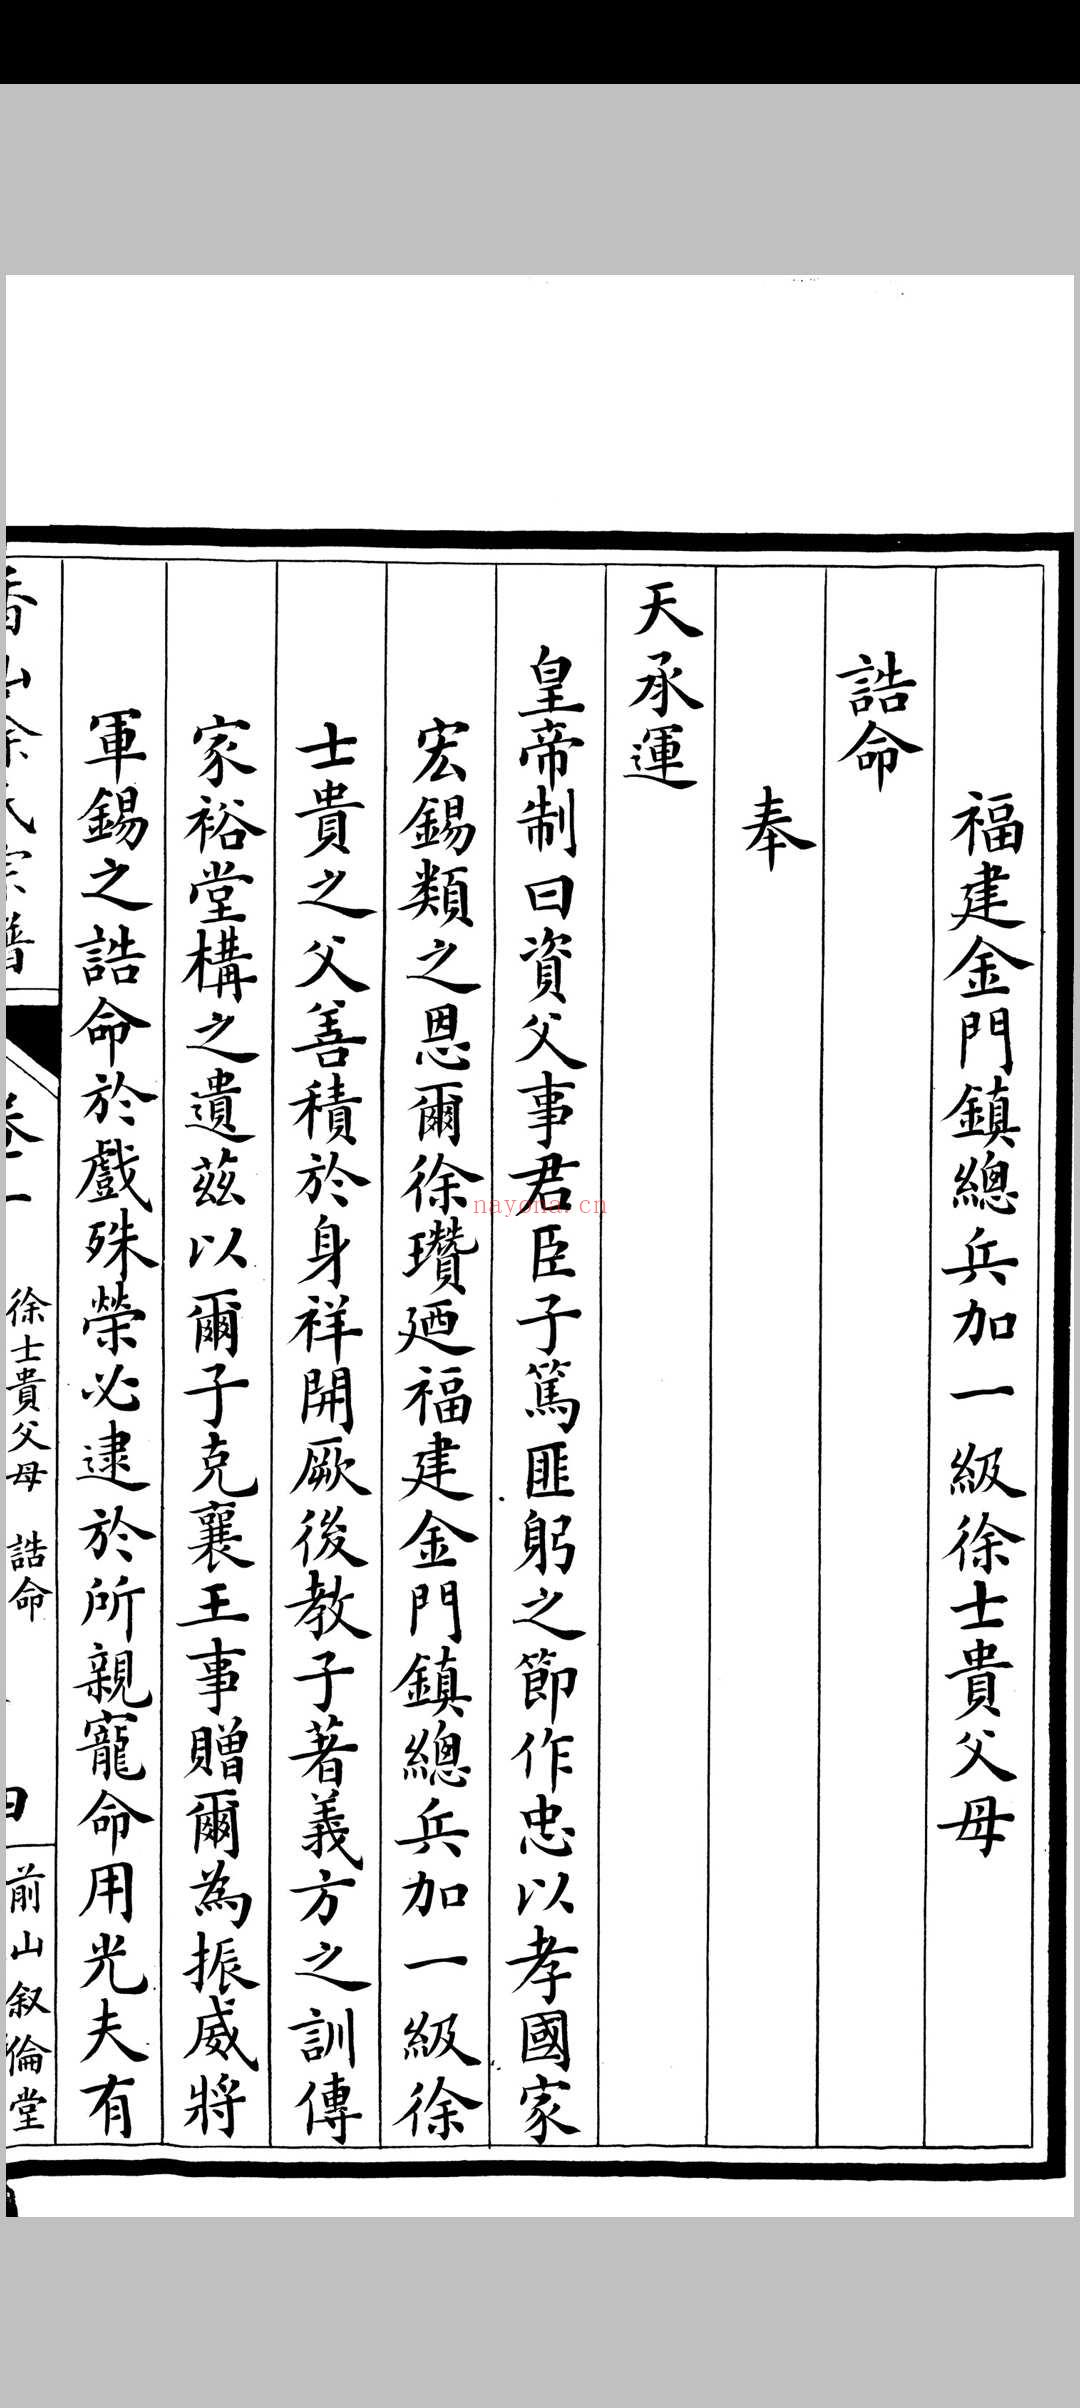 福建金門鎮總兵加一級徐士貴父母
誥命
奉
天承運
皇帝制曰資父事君臣子篤匪躬之節作忠以孝國家
宏錫類之恩爾徐瓚廼福建金門鎮總兵加一級徐
士貴之父善積於身祥開厥後教子著義方之訓傳
家裕堂構之遺茲以爾子克襄王事贈爾為振威將
軍錫之誥命於戲殊榮必逮於所親寵命用光夫有
香山徐氏宗譜
卷一
徐士貴父母 誥命
前山叙倫堂
nayona.cn